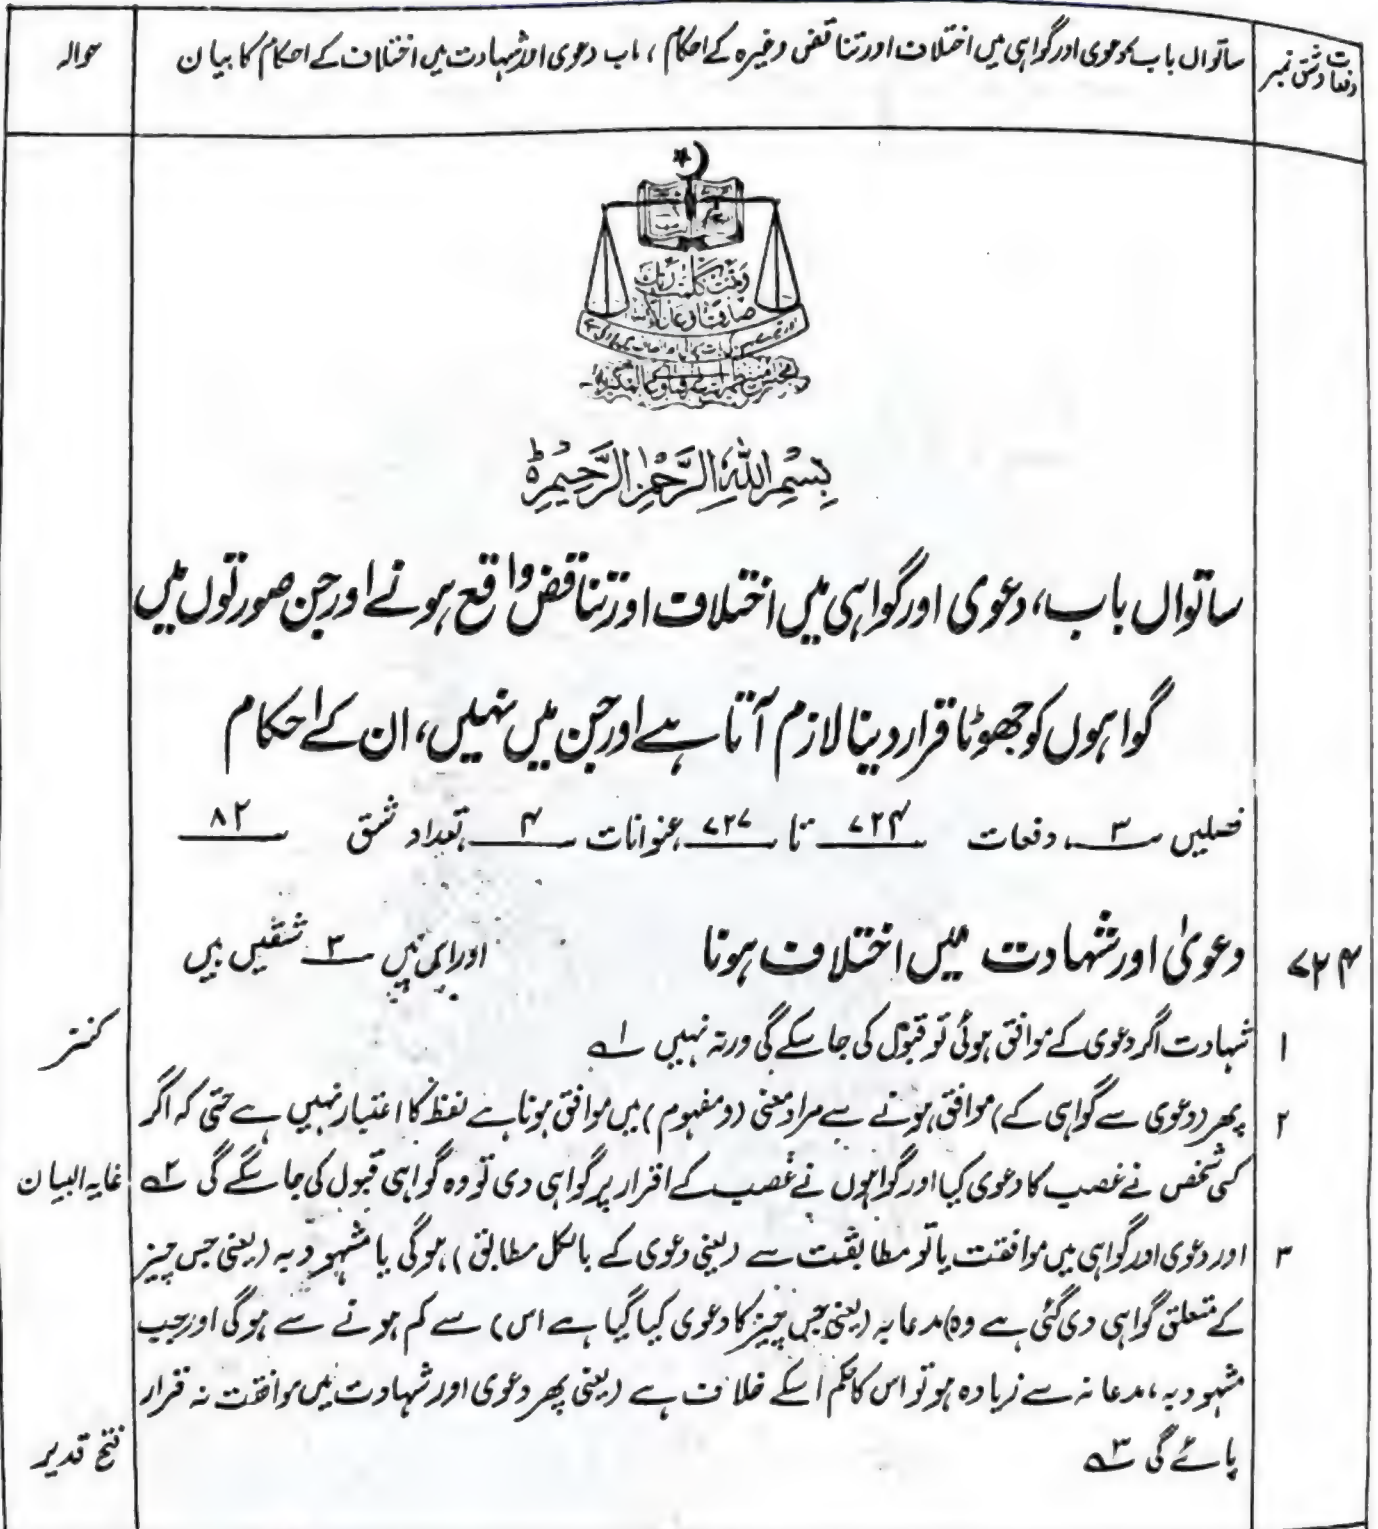 دفعات وشق نمبر
ساتواں باب دعوی اور گواہی میں اختلاف اور تناقض وغیرہ کے احکام ، باب دعوی اور شہادت میں اختلاف کے احکام کا بیان
حوالہ
وتمت كلمت ربك
صدقا وعدلا
بِسْمِ اللّٰهِ الرَّحْمٰنِ الرَّحِيْمِ
ساتواں باب، دعوی اور گواہی میں اختلاف اور تناقض واقع ہونے اور جن صورتوں میں
گواہوں کو جھوٹا قرار دینا لازم آتا ہے اور جن میں نہیں، ان کے احکام
فصلیں ۳، دفعات ۷۲۴ تا ۷۲۷، عنوانات ۴، تعداد شق ۸۲
۷۲۴ دعویٰ اور شہادت میں اختلاف ہونا اور اس میں ۳ شقیں ہیں
۱ شہادت اگر دعوی کے موافق ہوئی تو قبول کی جا سکے گی ورنہ نہیں ۱ے کنز
۲ پھر (دعوی سے گواہی کے) موافق ہونے سے مراد معنی (و مفہوم) میں موافق ہونا ہے لفظ کا اعتبار نہیں ہے حتی کہ اگر
کسی شخص نے غصب کا دعوی کیا اور گواہوں نے غصب کے اقرار پر گواہی دی تو وہ گواہی قبول کی جا سکے گی ۲ے غایہ البیان
۳ اور دعوی اور گواہی میں موافقت یا تو مطابقت سے (یعنی دعوی کے بالکل مطابق) ہوگی یا مشہود بہ (یعنی جس چیز
کے متعلق گواہی دی گئی ہے وہ) مدعا بہ (یعنی جس چیز کا دعوی کیا گیا ہے اس) سے کم ہونے سے ہوگی اور جب
مشہود بہ، مدعا بہ سے زیادہ ہو تو اس کا حکم اسکے خلاف ہے (یعنی پھر دعوی اور شہادت میں موافقت نہ قرار
پائے گی ۳ے فتح قدیر